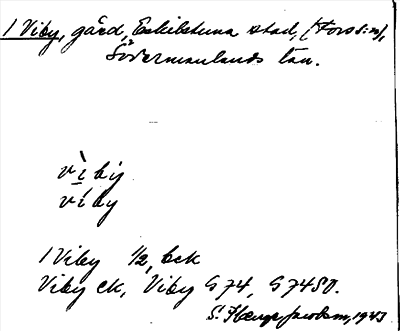 1 Viby, gård, Eskilstuna stad, (Fors sn),
Södermanlands län.
vì̱by
ví̱by
1 Viby ½, bck
Viby ck, Viby G74, G74SO.
1943